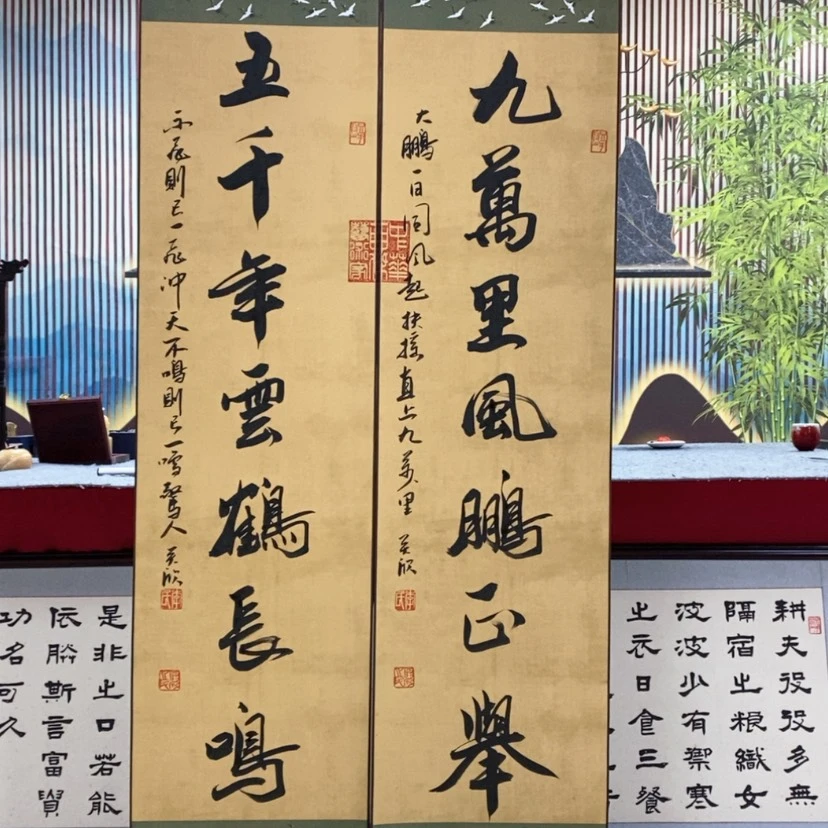 耕夫役役多無
隔宿之粮織女
波波少有禦寒
之衣日食三餐
九萬里風鵬正舉
大鵬一日同风起扶摇直上九萬里
五千年雲鶴長鳴
不飛則已一飛冲天不鳴則已一鳴驚人
是非之口若能
依朕斯言富貴
功名可久